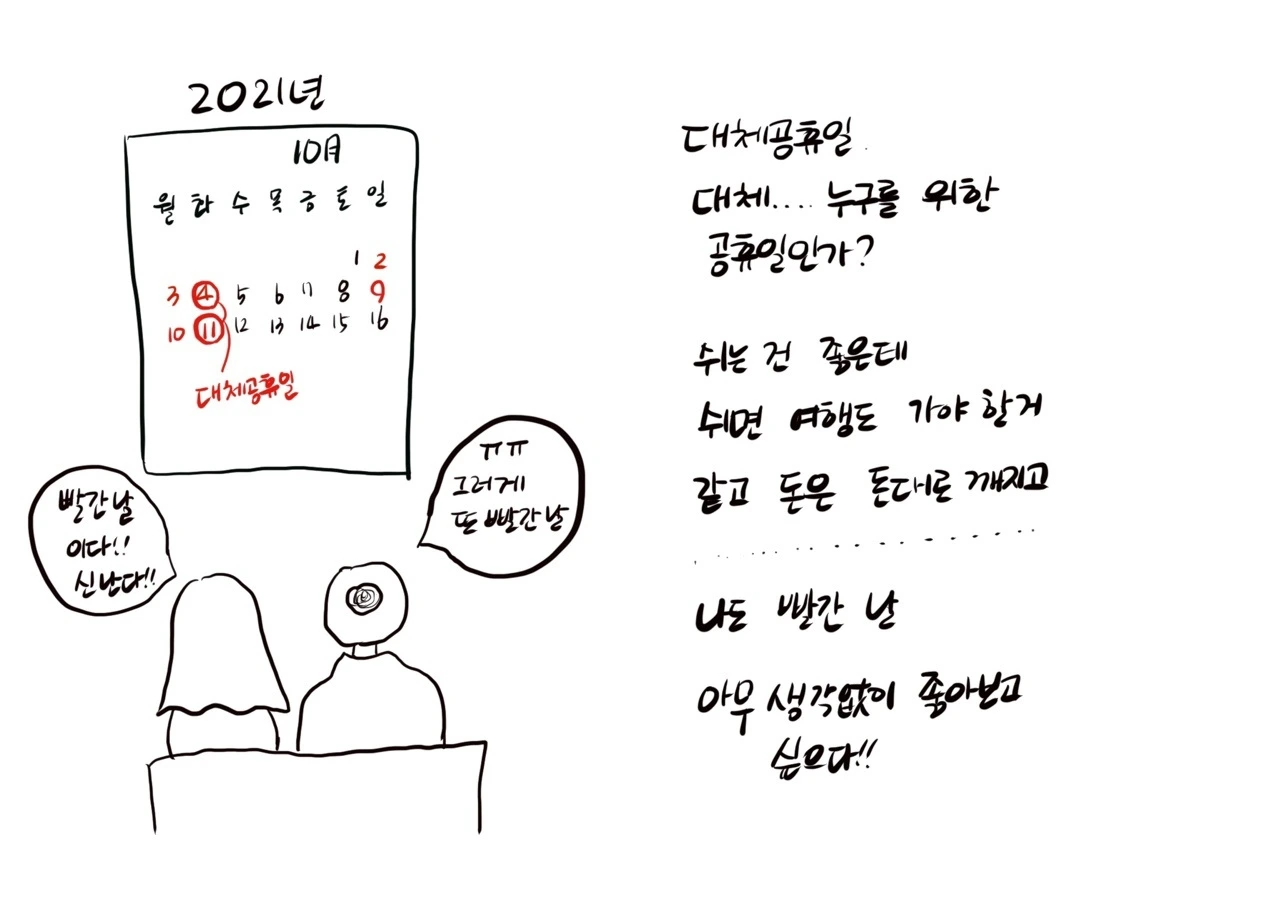 2021년
10月
월 화 수 목 금 토 일
1 2
3 4 5 6 7 8 9
10 11 12 13 14 15 16
대체공휴일
빨간날
이다!!
신난다!!
ㅠㅠ
그러게
또 빨간날
대체공휴일.
대체.... 누구를 위한
공휴일인가?
쉬는 건 좋은데
쉬면 여행도 가야 할거
같고 돈은 돈대로 깨지고
..................
나도 빨간 날
아무 생각없이 좋아보고
싶으다!!